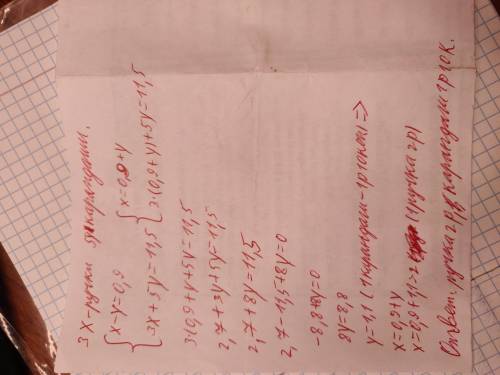 3 x - ручки 5 y карандаши.
{ x - y = 0,9 { x = 0,9 + y
{ 3x + 5y = 11,5 { 3·(0,9 + y) + 5y = 11,5
2,7 + 3y + 5y = 11,5
2,7 + 8y = 11,5
2,7 - 11,5 + 8y = 0
- 8,8 + 8y = 0
8y = 8,8
y = 1,1 (карандаш - 1гр 10коп) =>
x = 0,9 + y
x = 0,9 + 1,1 = 2 (ручка 2гр)
Ответ: ручка 2гр, карандаш 1гр 10к.